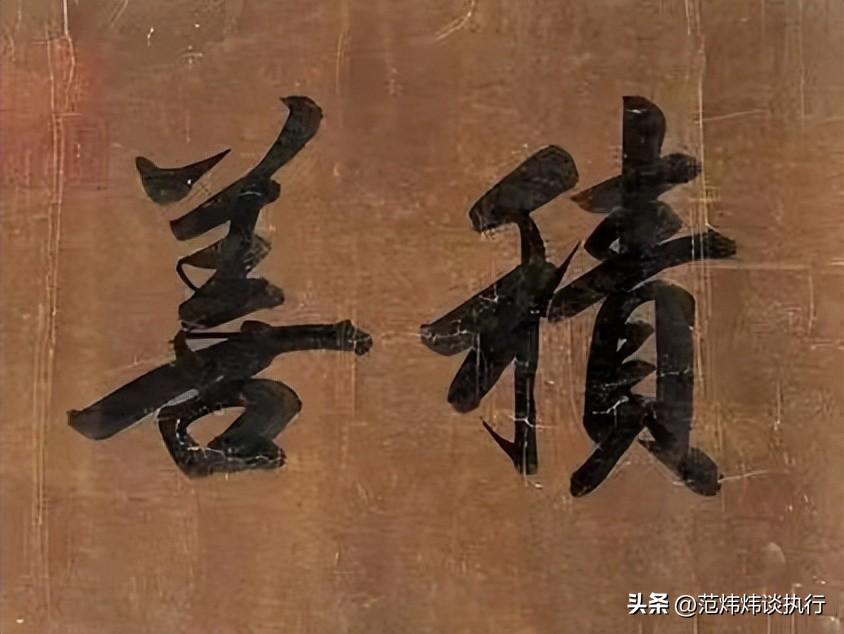 積善
头条 @范炜炜谈执行